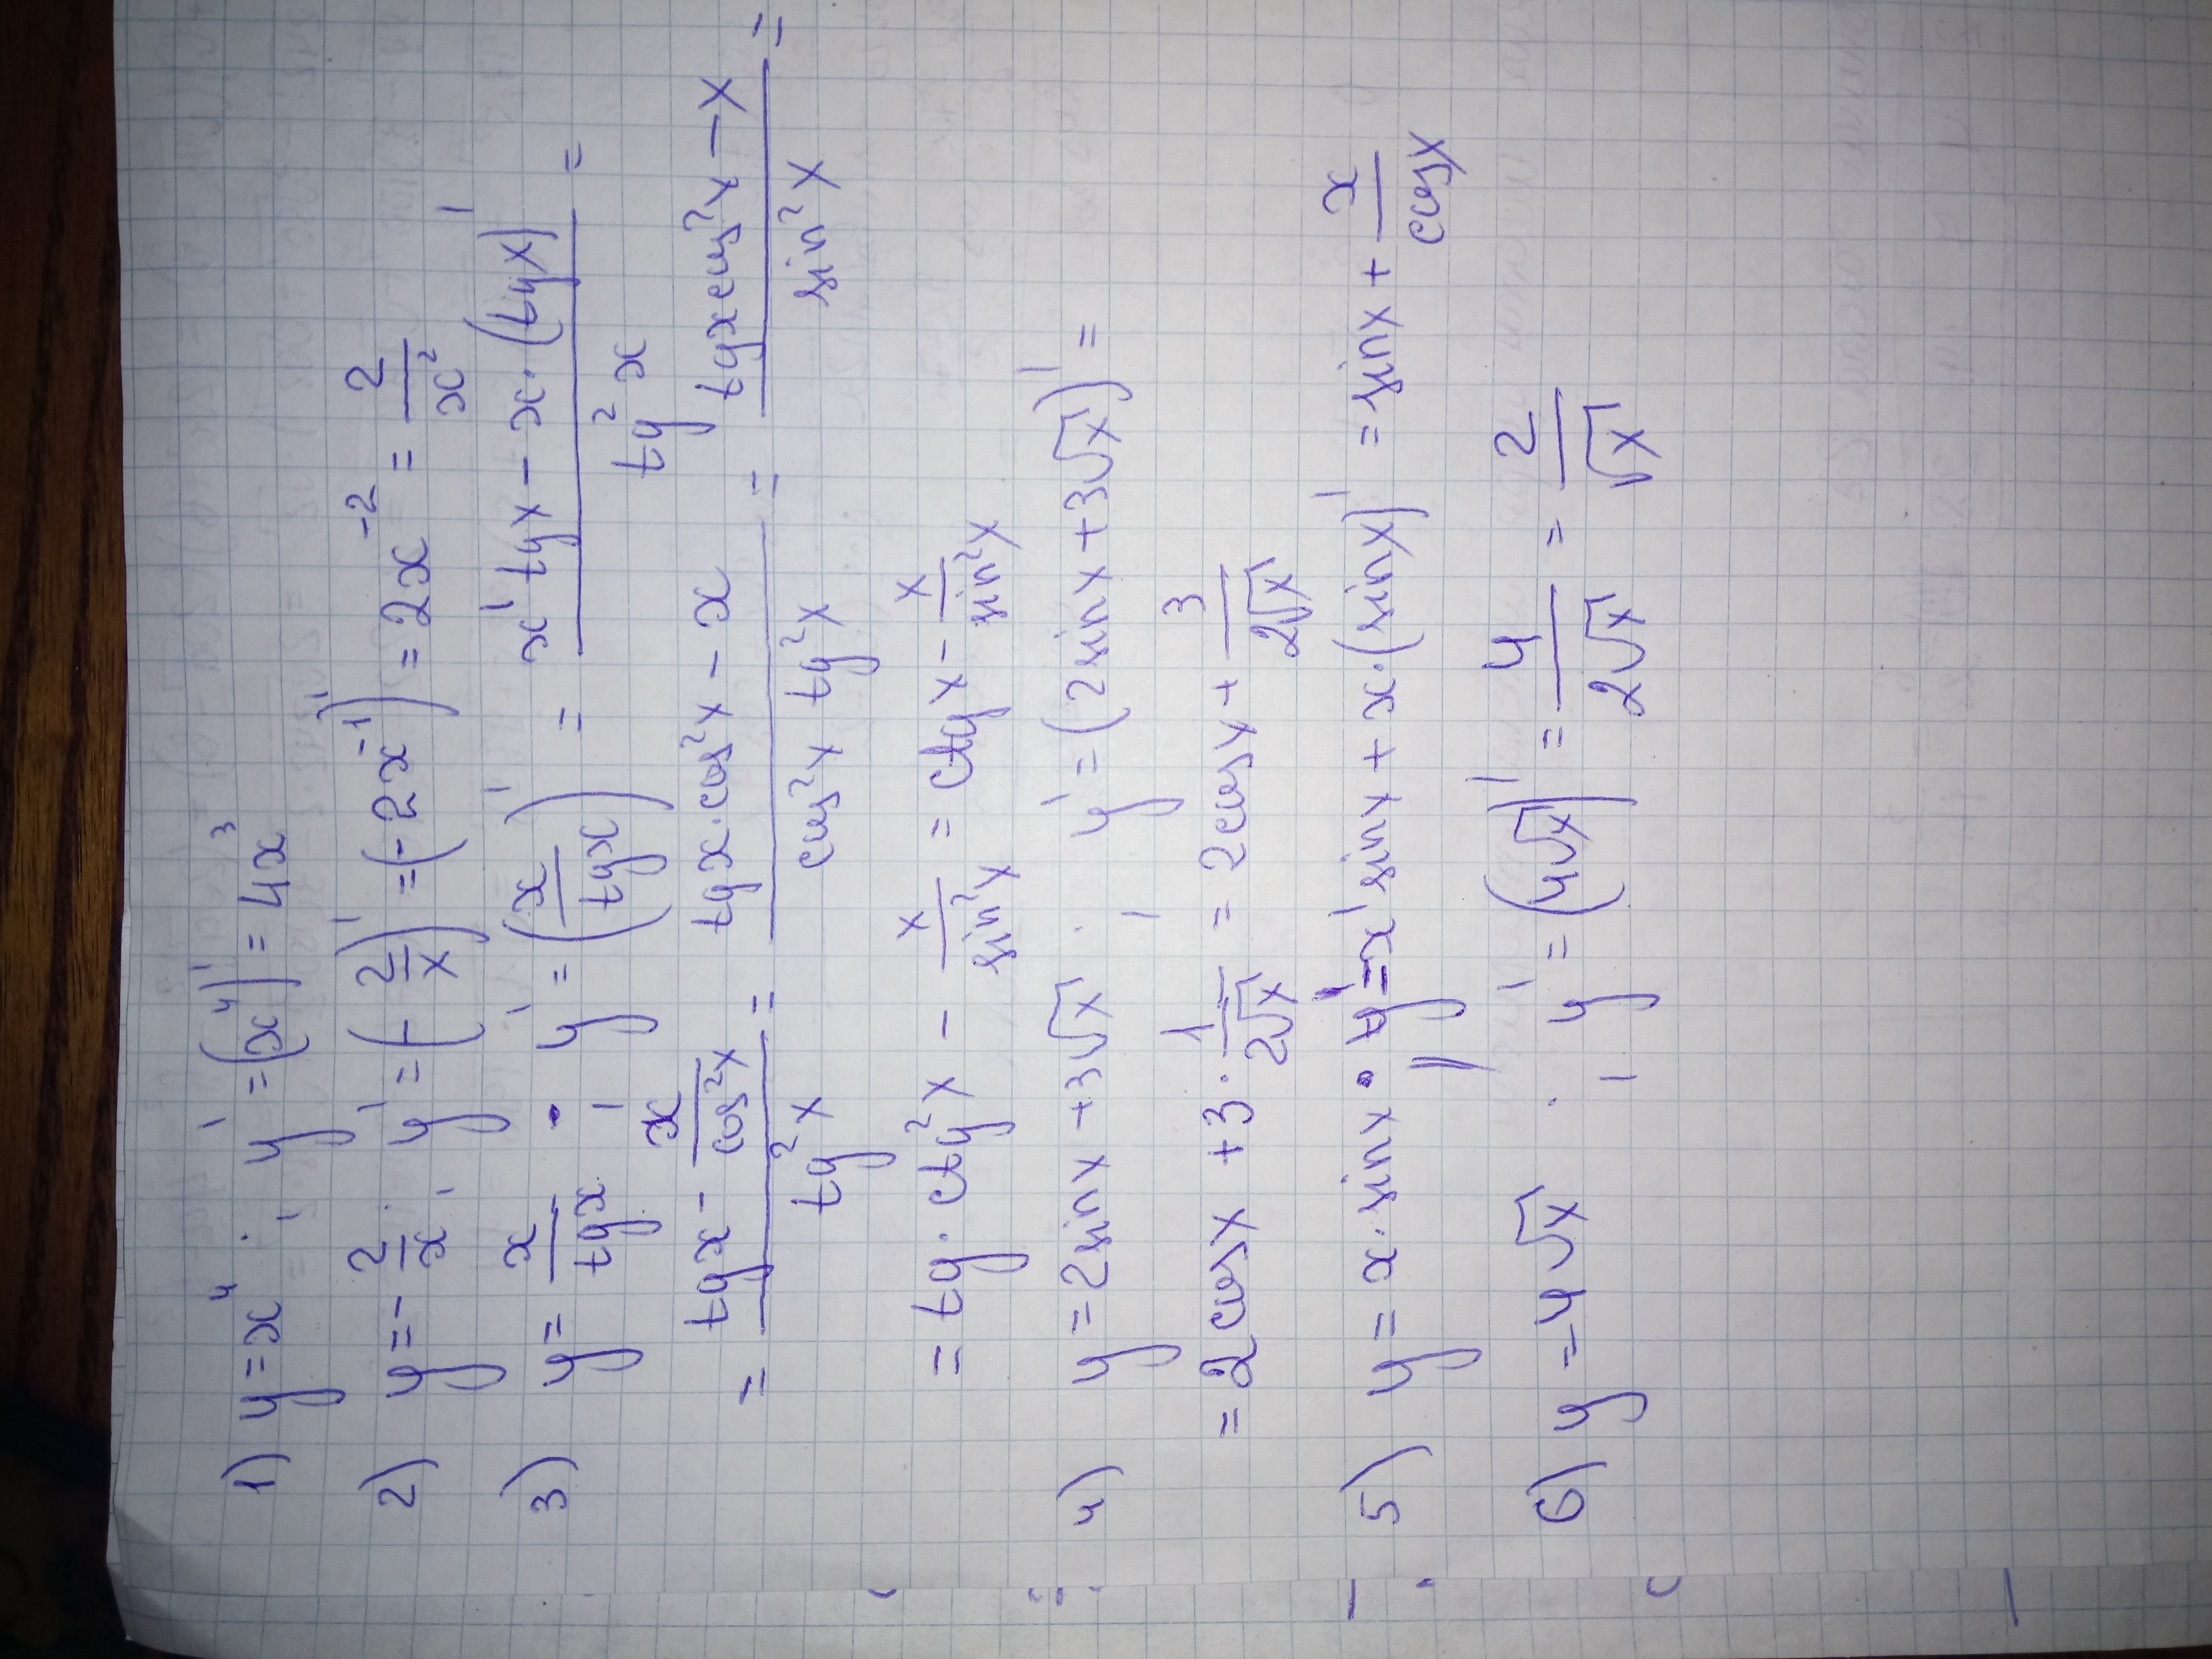 1) y=x⁴; y'=(x⁴)'=4x³
2) y=-2/x; y'=(-2/x)'=(-2x⁻¹)'=2x⁻²=2/x²
3) y=x/tgx; y'=(x/tgx)'=(x'tgx-x·(tgx)')/tg²x=
=(tgx-x/cos²x)/tg²x=(tgx·cos²x-x)/(cos²x tg²x)=(tgxcos²x-x)/sin²x=
=tg·ctg²x-x/sin²x=ctgx-x/sin²x
4) y=2sinx+3√x; y'=(2sinx+3√x)'=
=2cosx+3·1/(2√x)=2cosx+3/(2√x)
5) y=x·sinx; y'=x'sinx+x·(sinx)'=sinx+x/cosx
6) y=4√x; y'=(4√x)'=4/(2√x)=2/√x